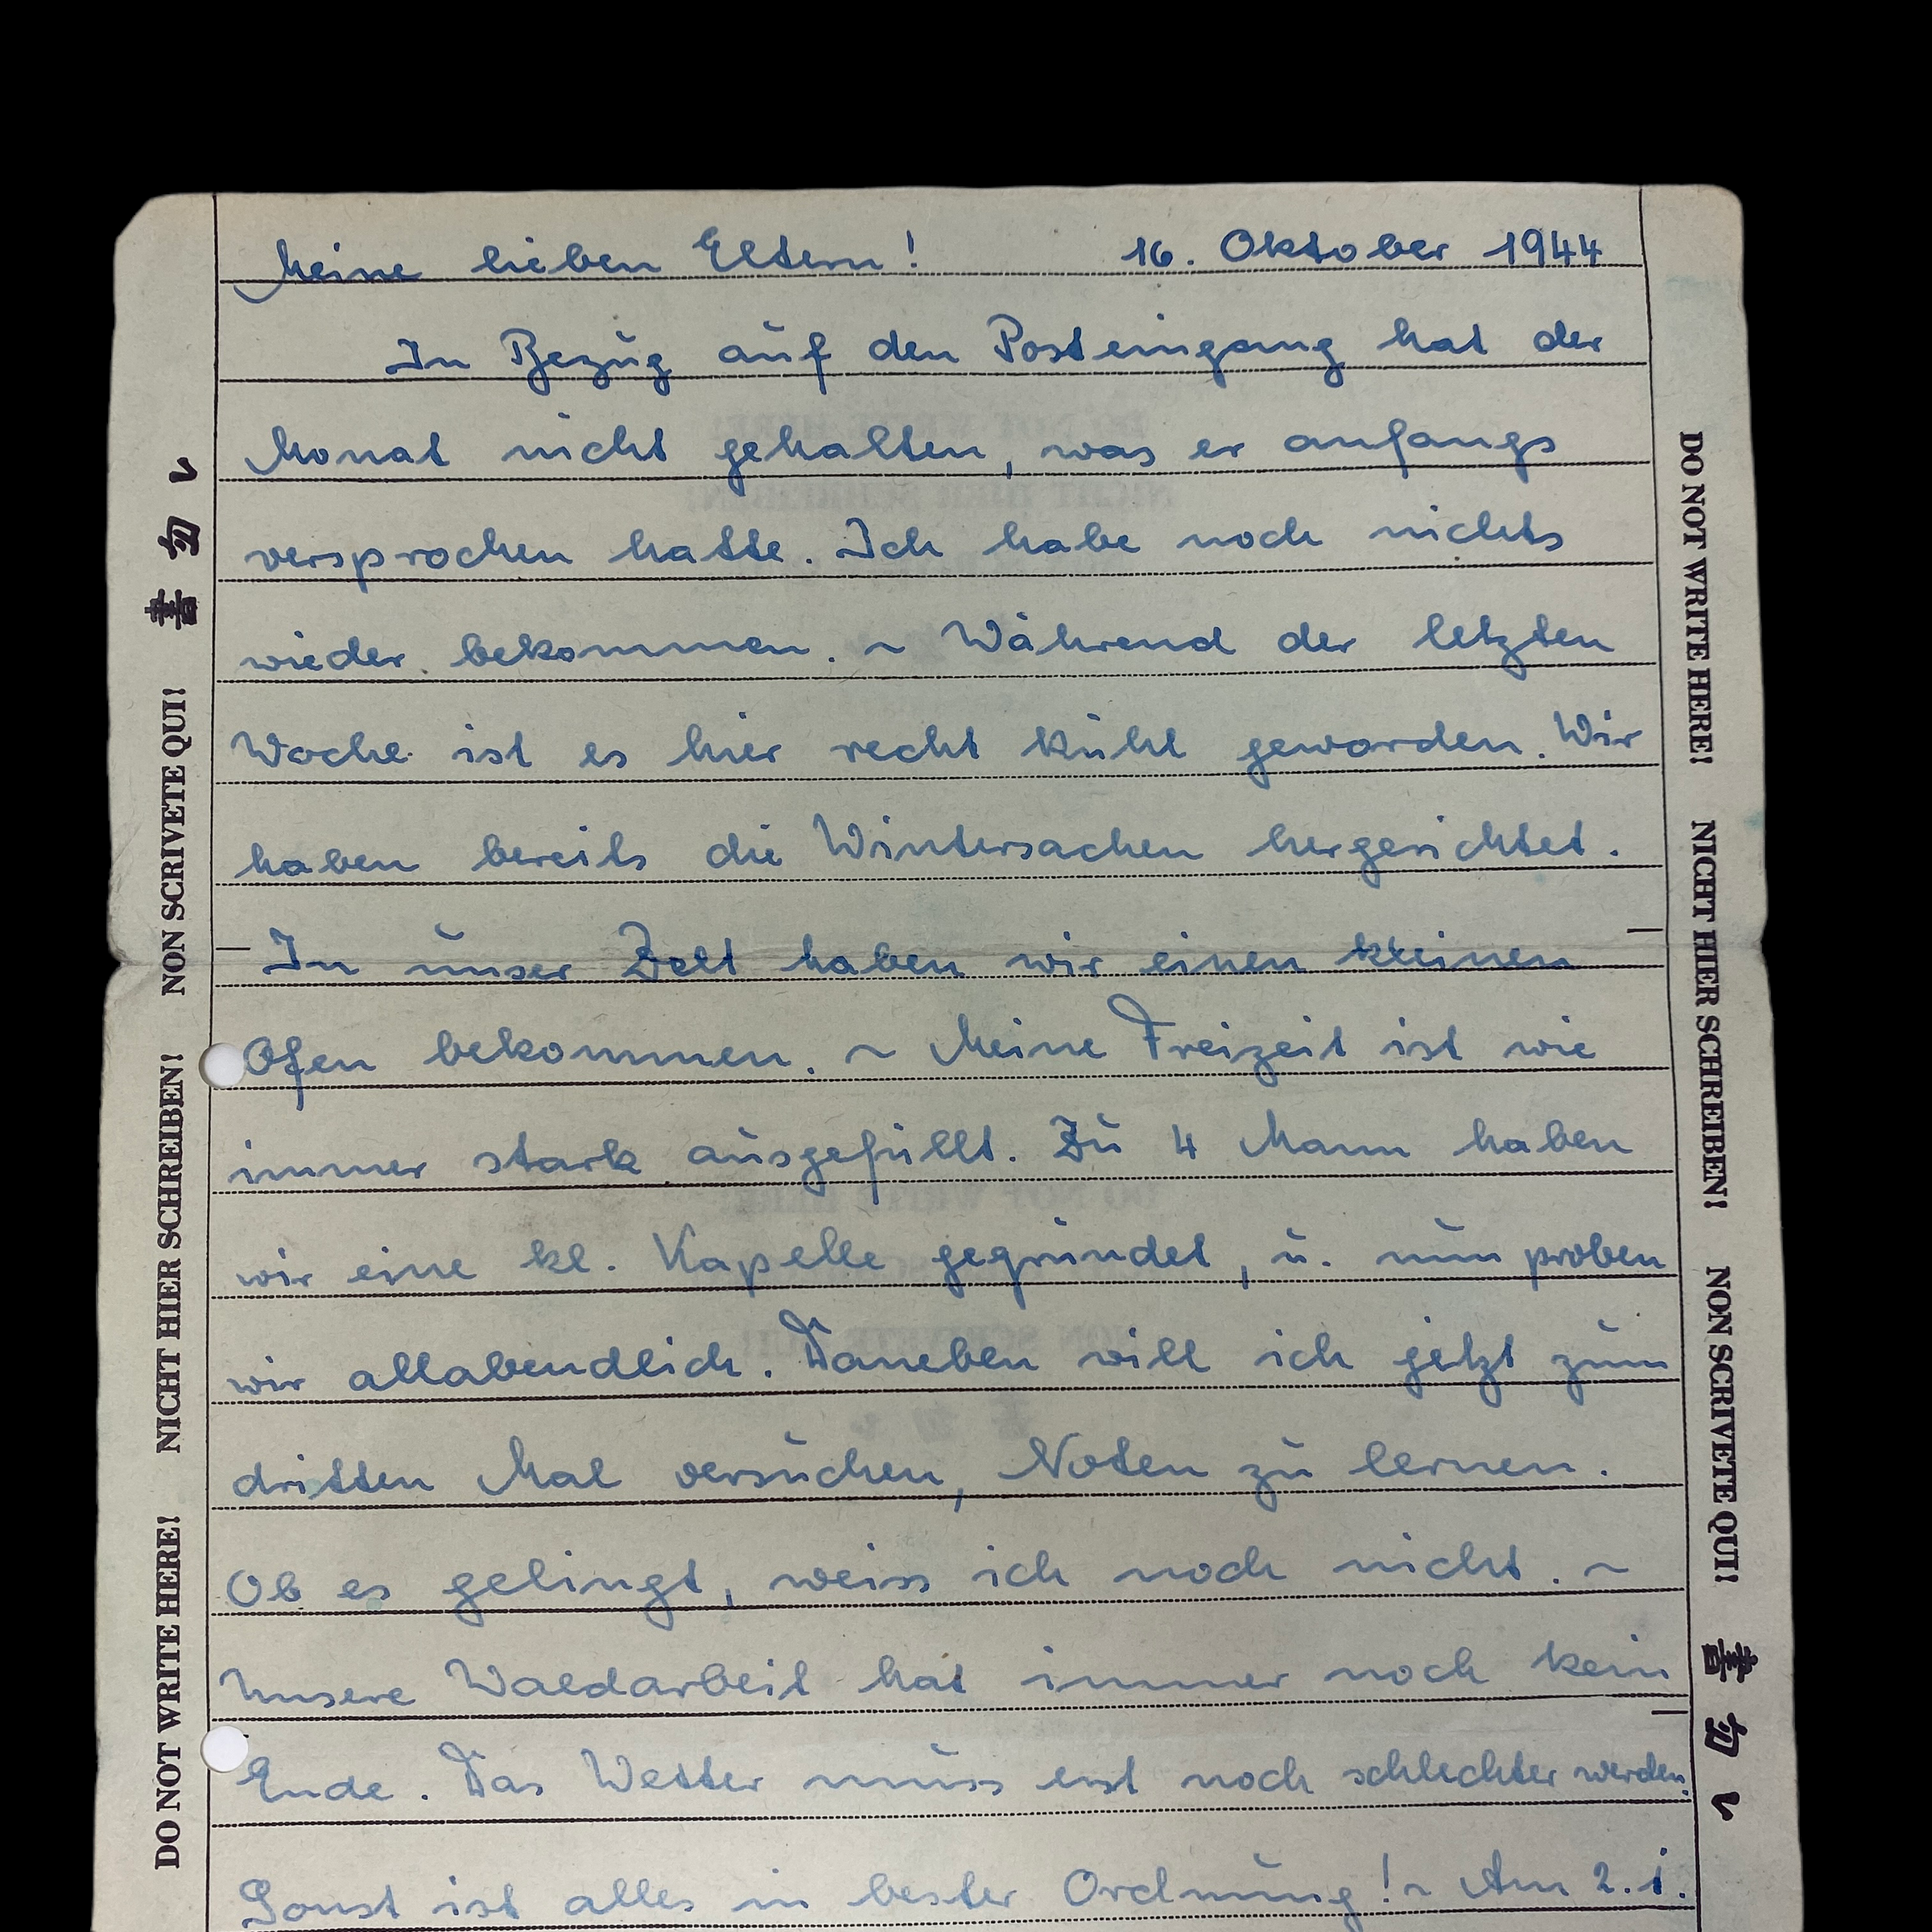 Meine lieben Eltern! 16. Oktober 1944
In Bezug auf den Posteingang hat der
Monat nicht gehalten, was er anfangs
versprochen hatte. Ich habe noch nichts
wieder bekommen. ~ Während der letzten
Woche ist es hier recht kühl geworden. Wir
haben bereits die Wintersachen hergerichtet.
In unser Zelt haben wir einen kleinen
Ofen bekommen. ~ Meine Freizeit ist wie
immer stark ausgefüllt. Zu 4 Mann haben
wir eine kl. Kapelle gegründet, u. nun proben
wir allabendlich. Daneben will ich jetzt zum
dritten Mal versuchen, Noten zu lernen.
Ob es gelingt, weiss ich noch nicht. ~
Unsere Waldarbeit hat immer noch kein
Ende. Das Wetter muss erst noch schlechter werden.
Sonst ist alles in bester Ordnung! ~ Am 2. 1.
DO NOT WRITE HERE! NICHT HIER SCHREIBEN! NON SCRIVETE QUI! 書勿レ
DO NOT WRITE HERE! NICHT HIER SCHREIBEN! NON SCRIVETE QUI! 書勿レ